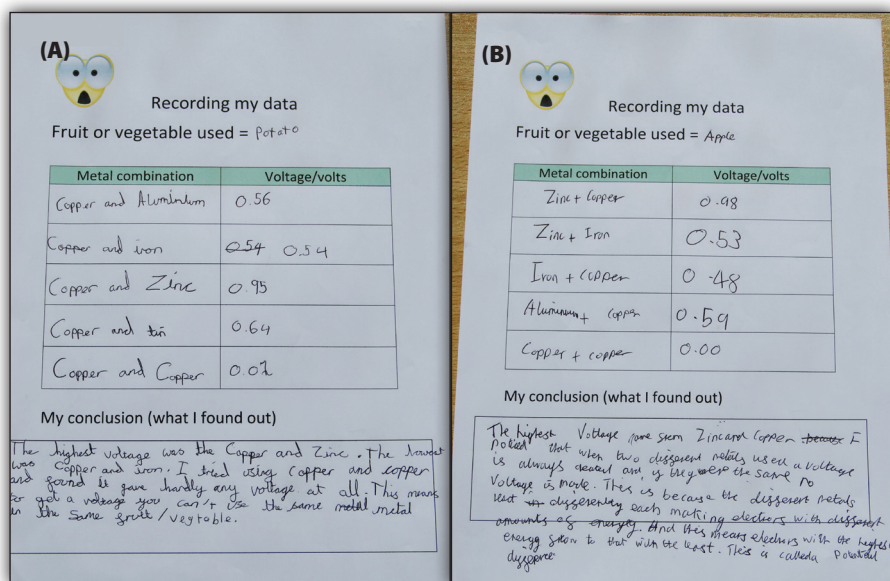 (A)
Recording my data
Fruit or vegetable used = Potato
Metal combination Voltage/volts
Copper and Aluminium 0.56
Copper and iron 0.54 0.54
Copper and Zinc 0.95
Copper and tin 0.64
Copper and Copper 0.01
My conclusion (what I found out)
The highest voltage was the Copper and Zinc. The lowest
was Copper and iron. I tried using copper and copper
and found it gave hardly any voltage at all. This means
to get a voltage you can't use the same metal metal
in the same fruit/vegtable.
(B)
Recording my data
Fruit or vegetable used = Apple
Metal combination Voltage/volts
Zinc + Copper 0.98
Zinc + Iron 0.53
Iron + copper 0.48
Aluminium + copper 0.59
Copper + copper 0.00
My conclusion (what I found out)
The highest Voltage from Zinc and Copper F
that when two different metals used a voltage
is always and if they the same no
Voltage is made. This is because the different metals
differently each making electrons with different
amounts of energy. And this means electrons with the highest
energy to that with the least. This is called a Potential
difference